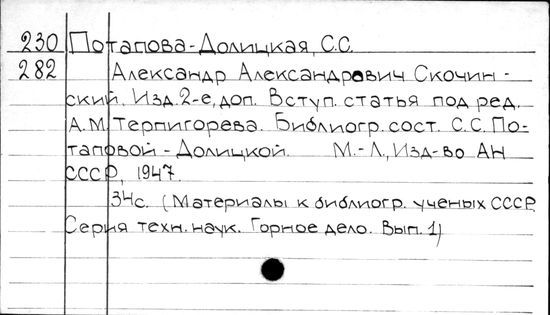 230 Потапова-Долицкая, С.С.
282 Александр Александрович Скочин-
ский. Изд. 2-е, доп. Вступ. статья под ред.
А.М. Терпигорева. Библиогр. сост. С.С. По-
таповой-Долицкой. М.-Л., Изд-во АН
СССР, 1947.
34с. (Материалы к библиогр. ученых СССР.
Серия техн. наук. Горное дело. Вып. 1)